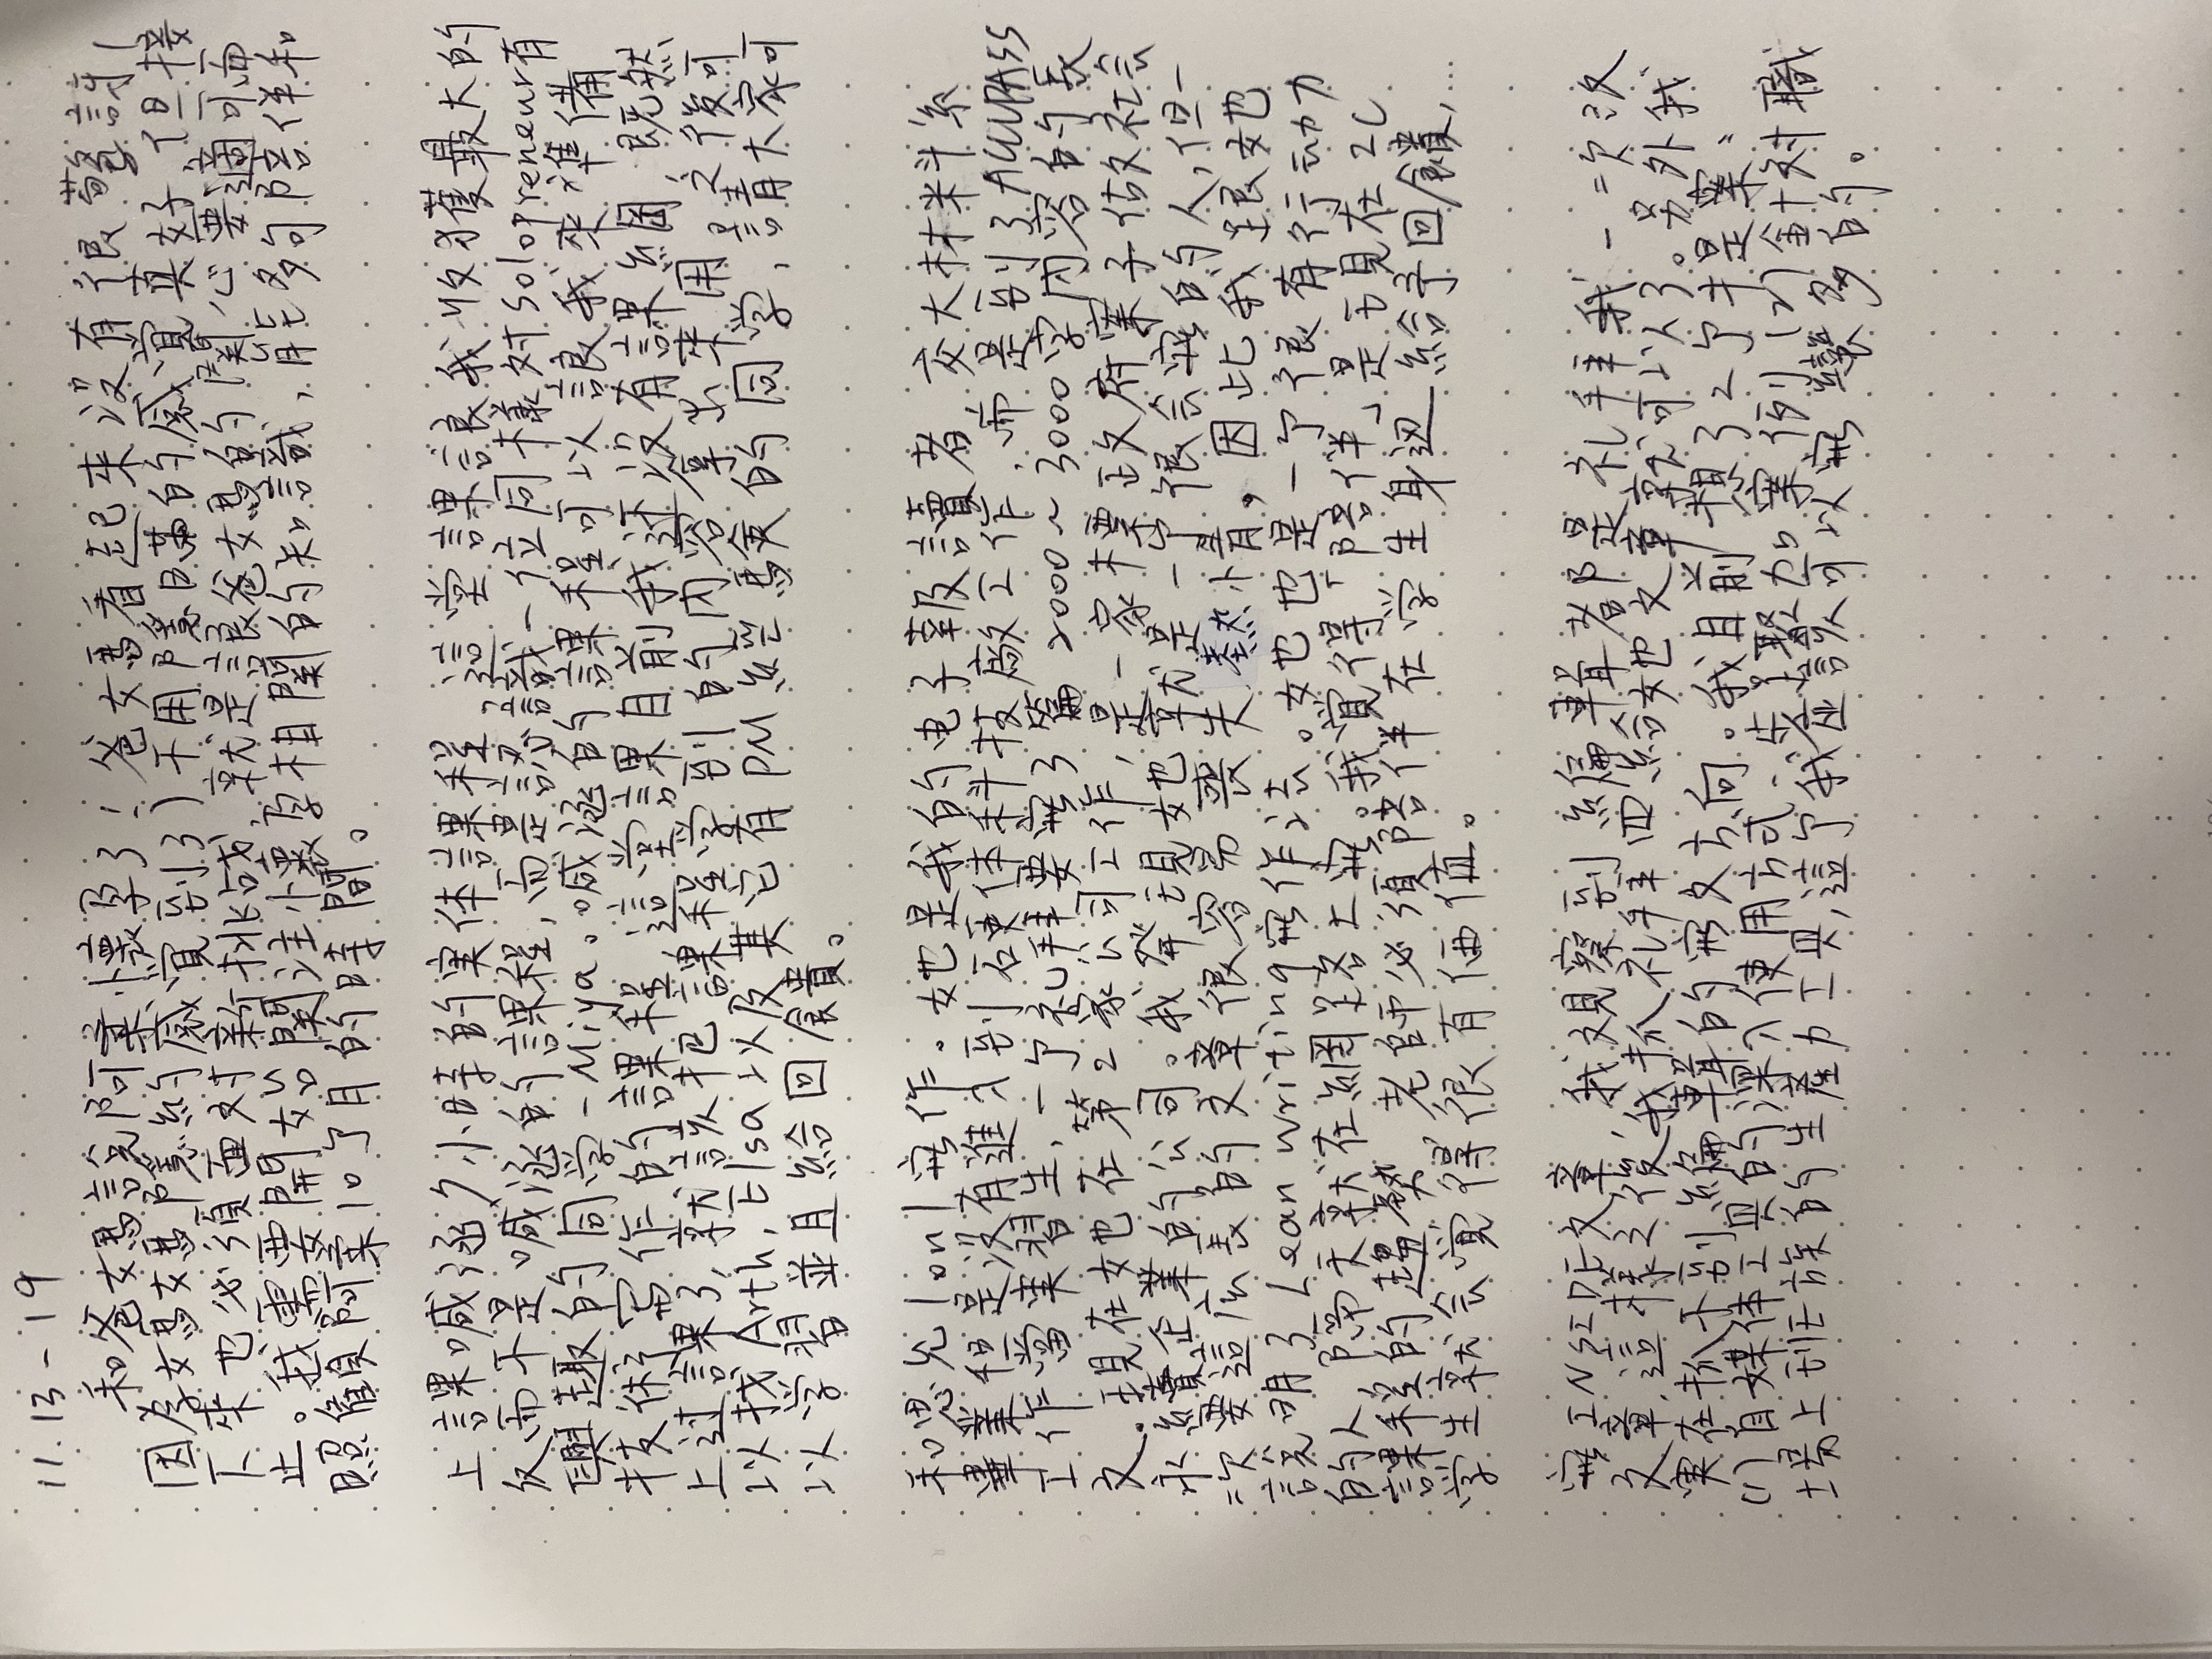 11.13-19
和爸媽說阿柔懷孕了!爸媽看起來沒有很驚訝,
因為媽媽隱約感覺到了)不用隱瞞的感覚真好,但接
下來也必須面対新挑战,就是讓爸媽的関心要適可而
止。我需要開始関注懷孕相関的知識,能多句陪伴和
照顧阿柔10个月的時間。
上課喊涵7小時的実体課程,這堂課讓我收獲最大的
反而不是喊涵的課程,而是認識一位同樣対solopreneur有
興趣的同学-Miya。喊涵的課程可以讓我來準備
技術写作的課程,這堂課目前我还沒有課綱,既然
上过課了,就該把課程学到的內容拿出來用,之後可
以找Arth,Elsa以及其它有PM經驗的同学,請大家可
以学習並且給回饋。
和思允1on1寫作。她是我的电子報讀者,交大材料系
畢業但是沒有進入到硬体科技廠工作,而是到了ACCUPASS
工作當実習生,一个礼拜要寫3篇2000~3000字內容的長
文。現在她在第2家公司工作,是一家標政府案子做社会
永續企業的公司。我発現她就是一个很会寫的人,但一
次要這広長的文章很容易喪失熱情。因此我跟她
說明了Lean writing寫作法。她也是一个很有行动力
的人,隔天就在網路上寫。我覚得「陪伴」是現在2C
課程的趨勢,老師必須陪伴在学生身辺給予回饋,...
学生就会覚得很有価值。
寫INSIDE文章,我观察到編輯都是礼拜我一次改
文章,這樣之後我抓礼拜四給她文章就可以了。另外我
実在抓不到編輯的寫文方向。我目前想了2个提案:
(1)自媒体工具的深入使用方式-步驟加案例(2)針对職
場上班族的生產力工具,這个我应該可以寫蠻多的。